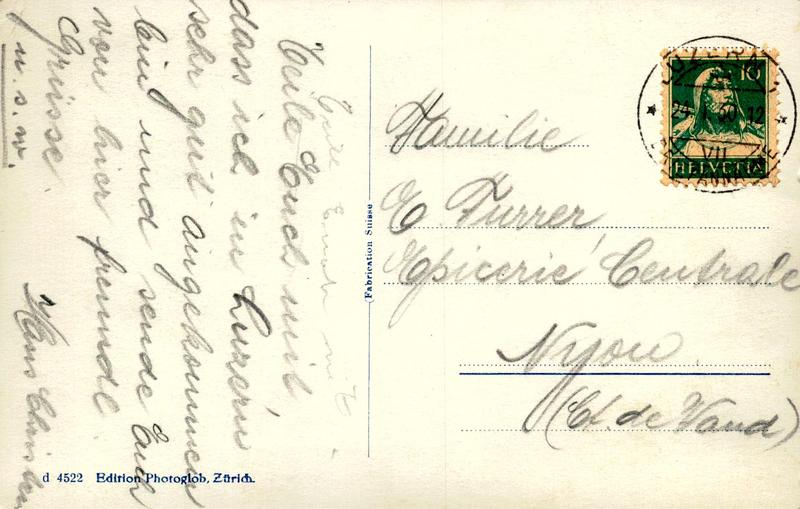 Teile Euch mit,
dass ich in Luzern
sehr gut angekommen
bin und sende Euch
von hier freundl.
Grüsse
u. s. w.
Hans
Familie
E. Furrer,
Epicerie Centrale
Nyon
(Ct. de Vaud)
(Fabrication Suisse
d 4522 Edition Photoglob, Zürich.
LUZERN 1
VII
10
HELVETIA